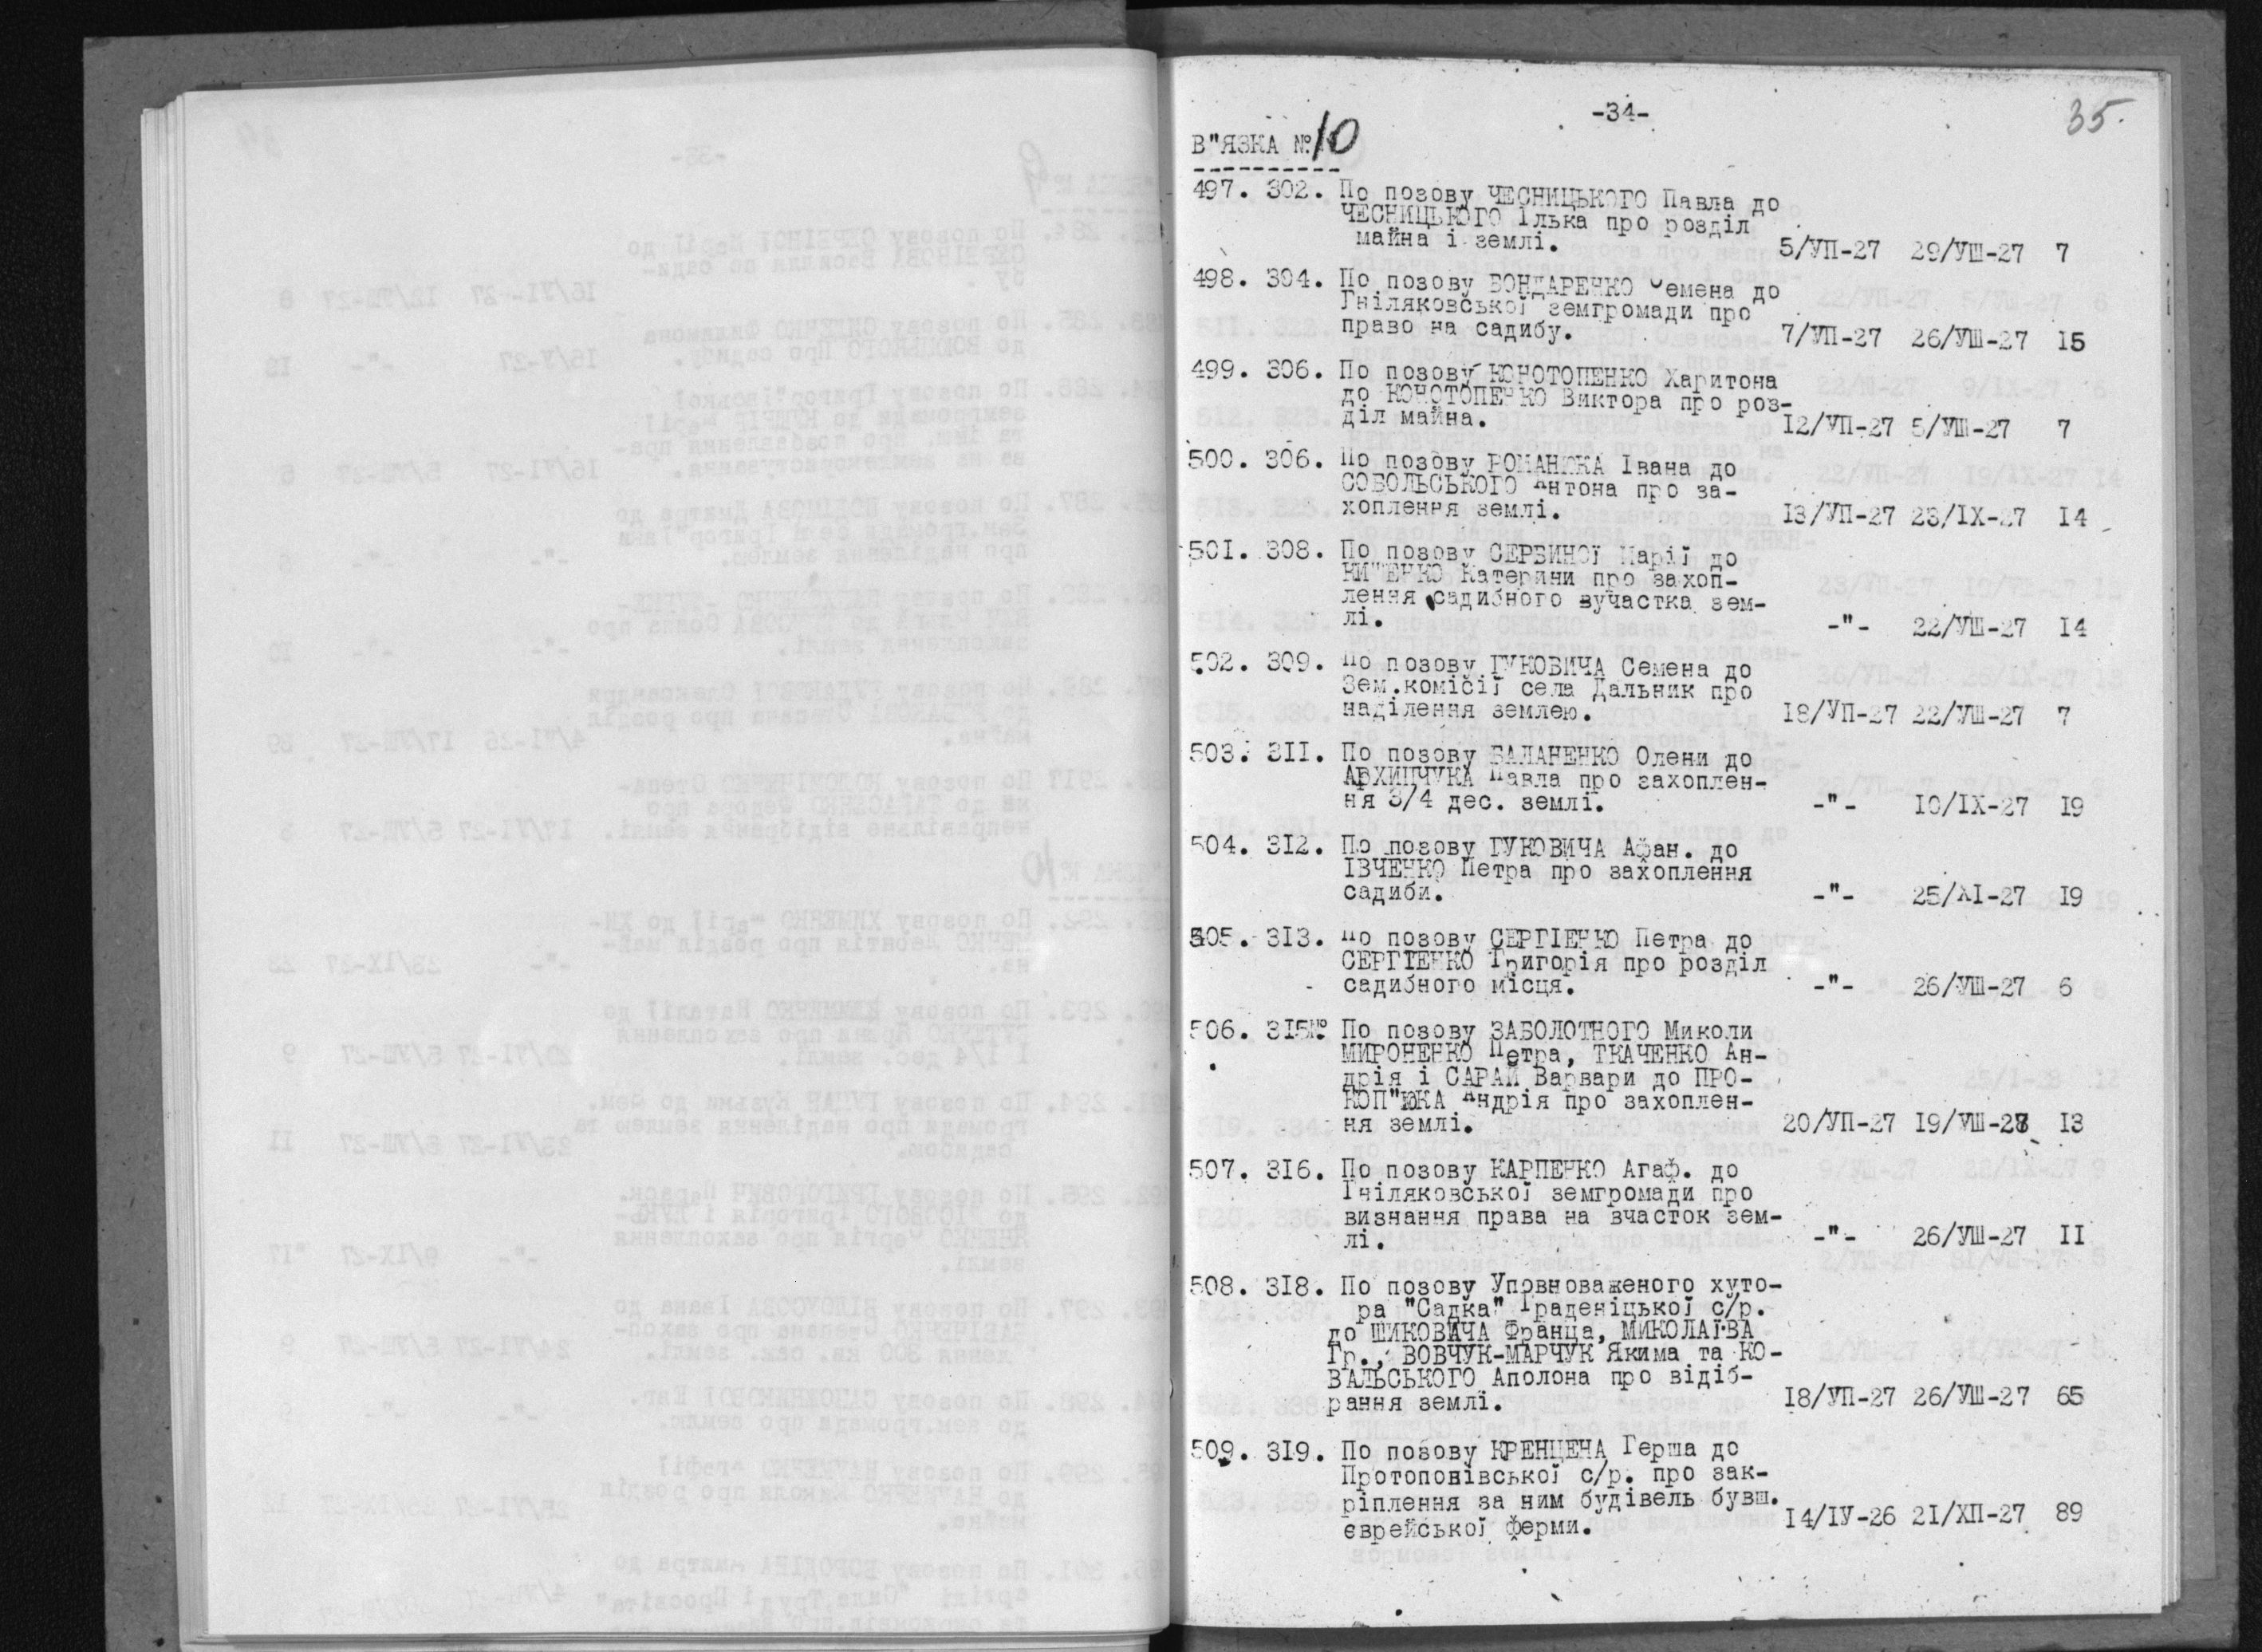 -34-
35.
В"ЯЗКА №10
497. 302. По позову ЧЕСНИЦЬКОГО Павла до
ЧЕСНИЦЬКОГО Ілька про розділ
майна і землі. 5/УП-27 29/УШ-27 7
498. 304. По позову БОНДАРЕНКО Семена до
Гніляковської земгромади про
право на садибу. 7/УП-27 26/УШ-27 I5
499. 306. По позову КОНОТОПЕНКО Харитона
до КОНОТОПЕНКО Виктора про роз-
діл майна. I2/УП-27 5/УШ-27 7
500. 306. По позову РОМАНЮКА Івана до
СОБОЛЬСЬКОГО Антона про за-
хоплення землі. I3/УП-27 23/IX-27 I4
501. 308. По позову СЕРБИНОЇ Марії до
Катерини про захоп-
лення садибного вучастка зем-
лі. -"- 22/УШ-27 I4
502. 309. По позову ГУКОВИЧА Семена до
Зем.комісії села Дальник про
наділення землею. I8/УП-27 22/УШ-27 7
503. 3II. По позову БАЛАНЕНКО Олени до
АРХИПЧУКА Павла про захоплен-
ня 3/4 дес. землі. -"- I0/IX-27 I9
504. 3I2. По позову ГУКОВИЧА Афан. до
ІВЧЕНКО Петра про захоплення
садиби. -"- 25/XI-27 I9
505. 3I3. По позову СЕРГІЕНКО Петра до
СЕРГІЕНКО Григорія про розділ
садибного місця. -"- 26/УШ-27 6
506. 3I5№ По позову ЗАБОЛОТНОГО Миколи
МИРОНЕНКО Петра, ТКАЧЕНКО Ан-
дрія і САРАЙ Варвари до ПРО-
КОП"ЮКА Андрія про захоплен-
ня землі. 20/УП-27 I9/УШ-27 I3
507. 3I6. По позову КАРПЕНКО Агаф. до
Гніляковської земгромади про
визнання права на вчасток зем-
лі. -"- 26/УШ-27 II
508. 3I8. По позову Уповноваженого хуто-
ра "Садка" Граденіцької с/р.
до ШИКОВИЧА Франца, МИКОЛАІВА
Гр., ВОВЧУК-МАРЧУК Якима та КО-
ВАЛЬСЬКОГО Аполона про відіб-
рання землі. I8/УП-27 26/УШ-27 65
509. 3I9. По позову КРЕНЦЕНА Герша до
Протоповівської с/р. про зак-
ріплення за ним будівель бувш.
єврейської ферми. I4/IУ-26 2I/ХП-27 89